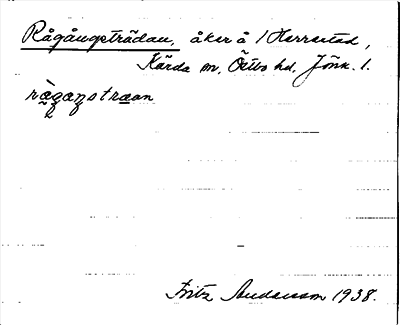 Rågångsträdan, åker å 1 Herrestad,
Kärda sn, Östbo hd, Jönk. l.
Fritz Andersson 1938.